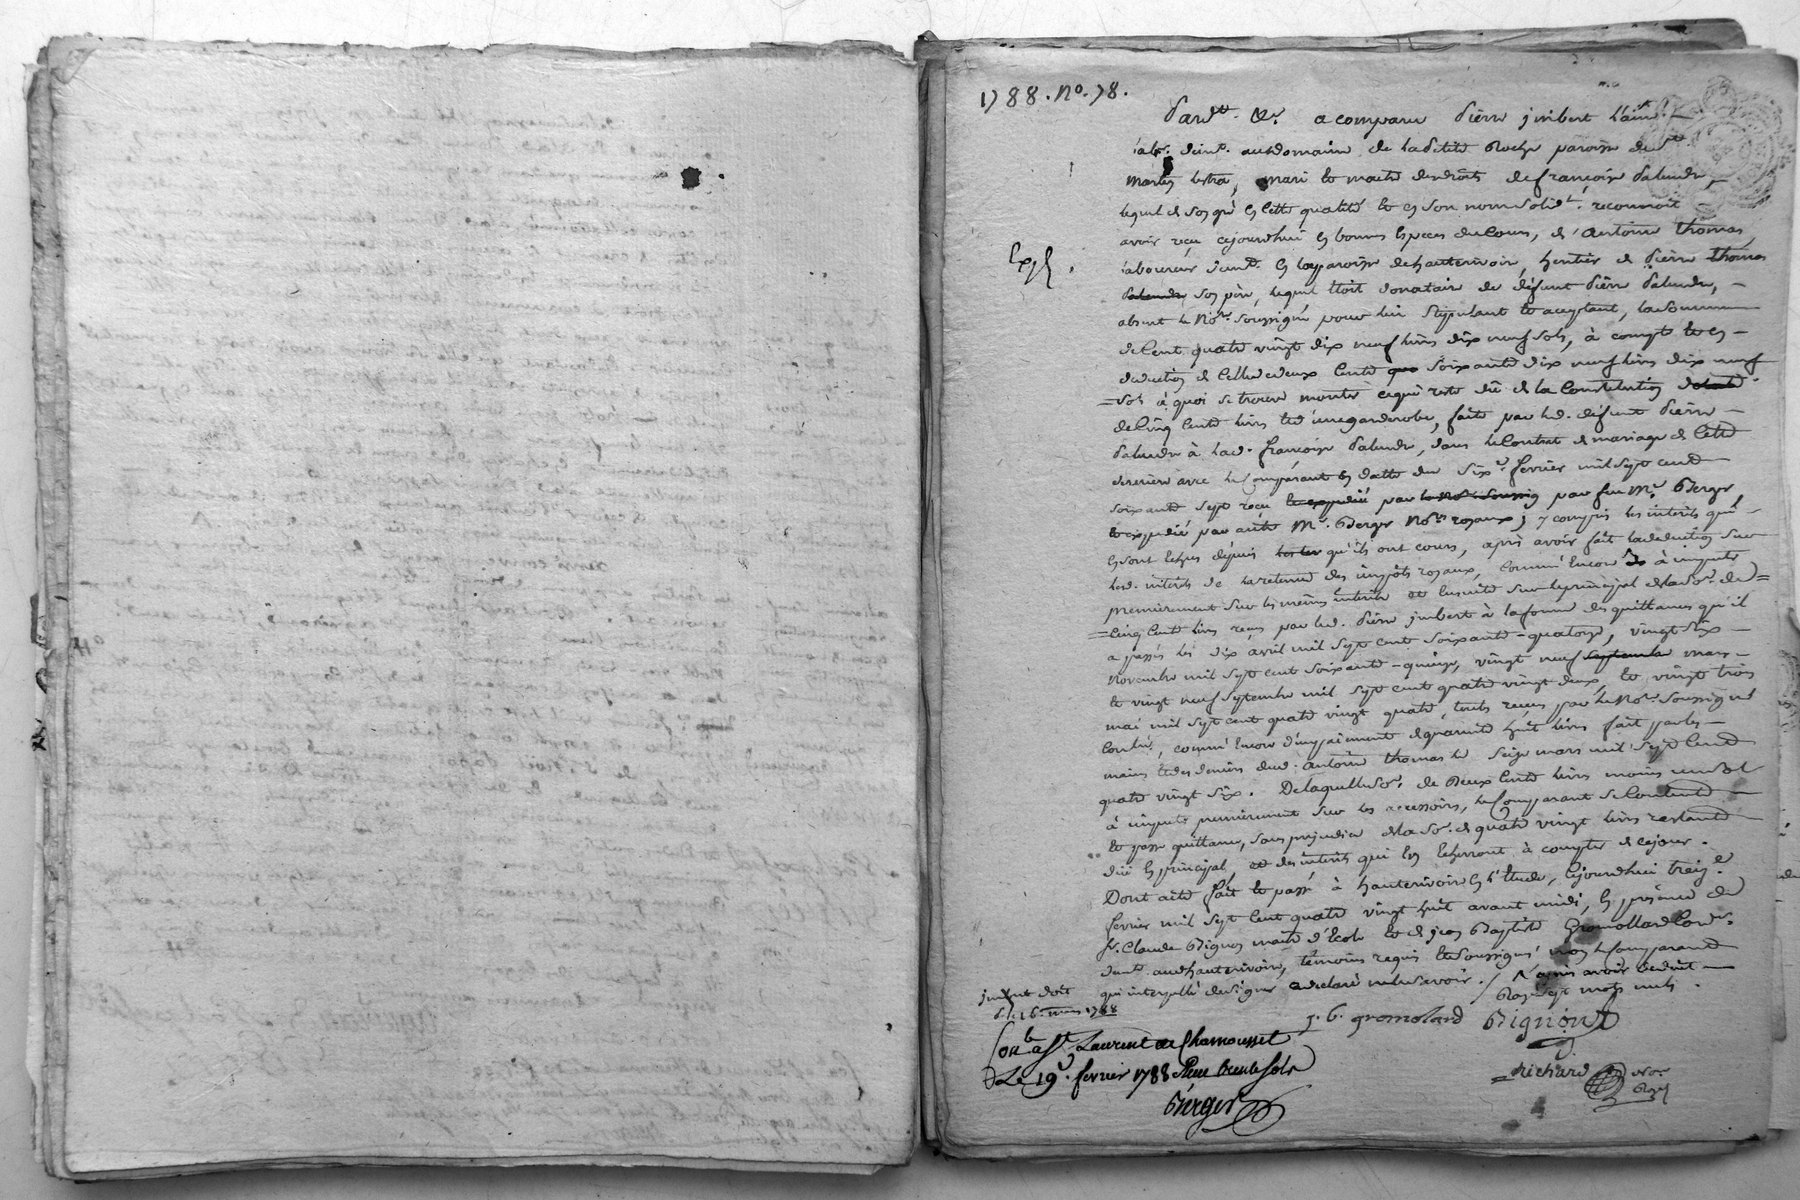 1788. No. 78.
Pardt. &c. a comparu Pierre jmbert l'ainé
labr. demt. au domaine de la Petite Roche paroisse de St
Martin lestra, mari et maitre des droits de françoise Palandre,
lequel de son gré en cette qualité et en son nom solidt. reconnoit
avoir reçu cejourd'hui en bonnes especes du cours, d'antoine thomas,
laboureur demt. en la paroisse de hauterivoir, heritier de Pierre thomas
son père, lequel étoit donataire de defunt Pierre Palandre,
absent le Nore. soussigné pour lui stipulant et aceptant, la somme
de cent quatre vingt dix neuf livres dix neuf sols, à compte et en
deduction de celle de deux cents soixante dix neuf livres dix neuf
sols à quoi se trouve monter ce qui reste dû de la Constitution
de Cinq cents livres et d'une garderobe, faite par led. défunt Pierre
Palandre à lad. françoise Palandre, dans le Contrat de mariage de cette
derniere avec le Comparant en datte du six février mil sept cent
soixante sept reçu par feu Me. Berger,
et expedié par autre Me. Berger Nores. royaux; y compris les interêts qui
en sont échus depuis qu'ils ont cours, après avoir fait la deduction sur
lesd. interêts de la retenue des impôts royaux, comme encore à imputer
premierement sur les mêmes interêts et ensuite sur le principal de la so. de
cinq cents livres reçus par led. Pierre jmbert à la forme des quittances qu'il
a passés les dix avril mil sept cent soixante-quatorze, vingt six
Novembre mil sept cent soixante-quinze, vingt neuf mars
et vingt neuf septembre mil sept cent quatre vingt deux, et vingt trois
mai mil sept cent quatre vingt quatre, touts reçus par le Nore. soussigné
Contrôlé, comme encore d'un paiement de quarante huit livres fait par les
mains et des deniers dud. antoine thomas le seize mars mil sept cent
quatre vingt six. De laquelle so. de Deux cents livres moins un sol
à imputer premierement sur les accessoirs, le Comparant se Contente
et passe quittance, sans prejudice de la so. de quatre vingt livres restante
due en principal, et des interêts qui en écherront à compter de ce jour.
Dont acte fait et passé à hauterivoir en l'étude, cejourd'hui treize
février mil sept cent quatre vingt huit avant midi, en présence de
Sr. Claude Bignon maitre d'école et de jean Baptiste Gromollard Cordr.
demt. aud. hauterivoir, témoins requis et soussignés, non le Comparant
qui interpellé de signer a declaré ne le savoir. / N après avoir
mots nuls.
j. b. gromolard Bignon
jmbert doit
le 16 mars 1788
Con.le a St. Laurent de Chamousset
Le 19e. fevrier 1788 Reçu trente sols
Berger
Richard Nore.
Royal